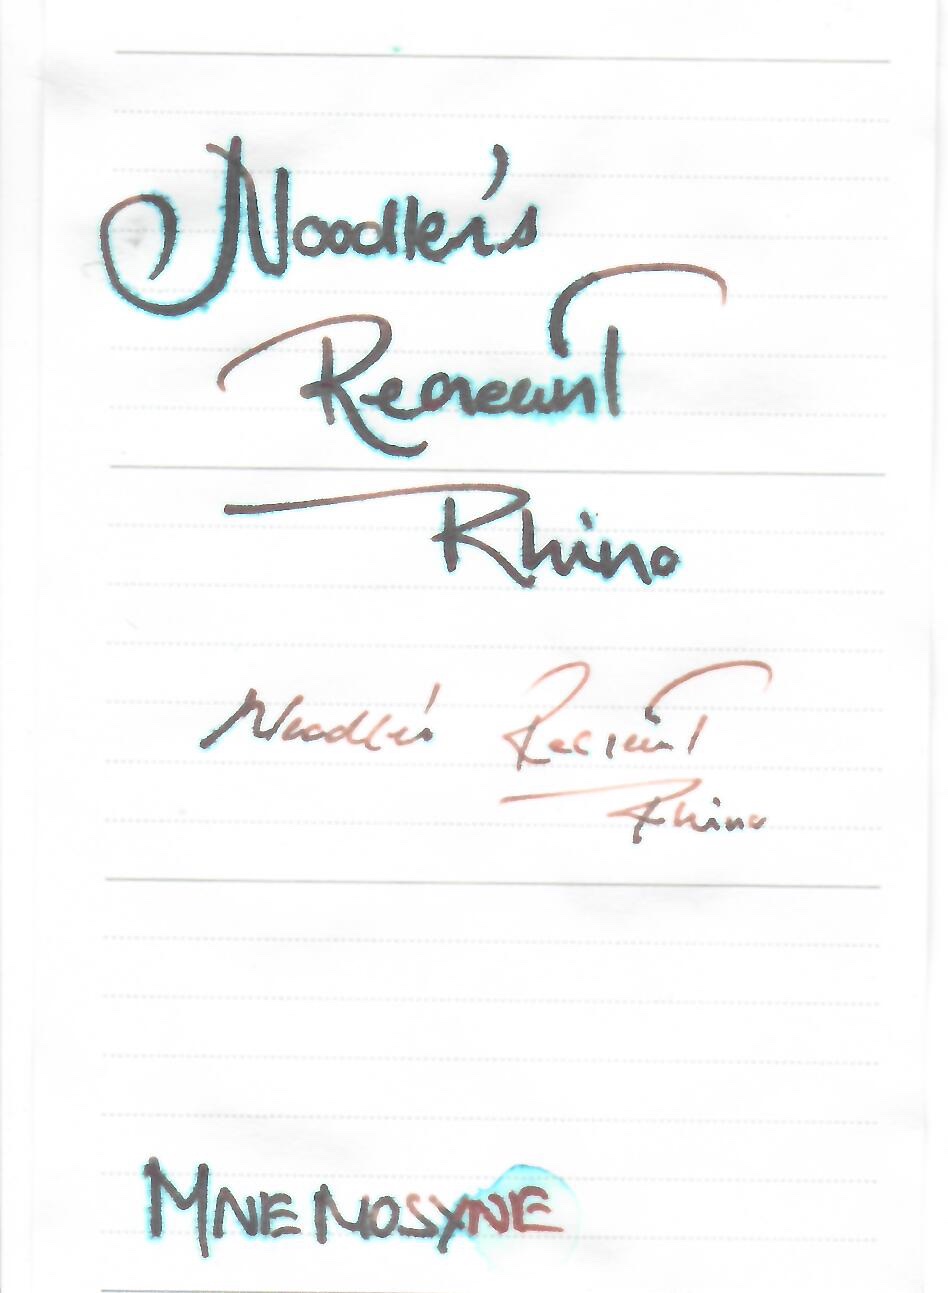 Noodler's
RecreanT
Rhino
Noodler's RecreanT
Rhino
MNEMOSYNE